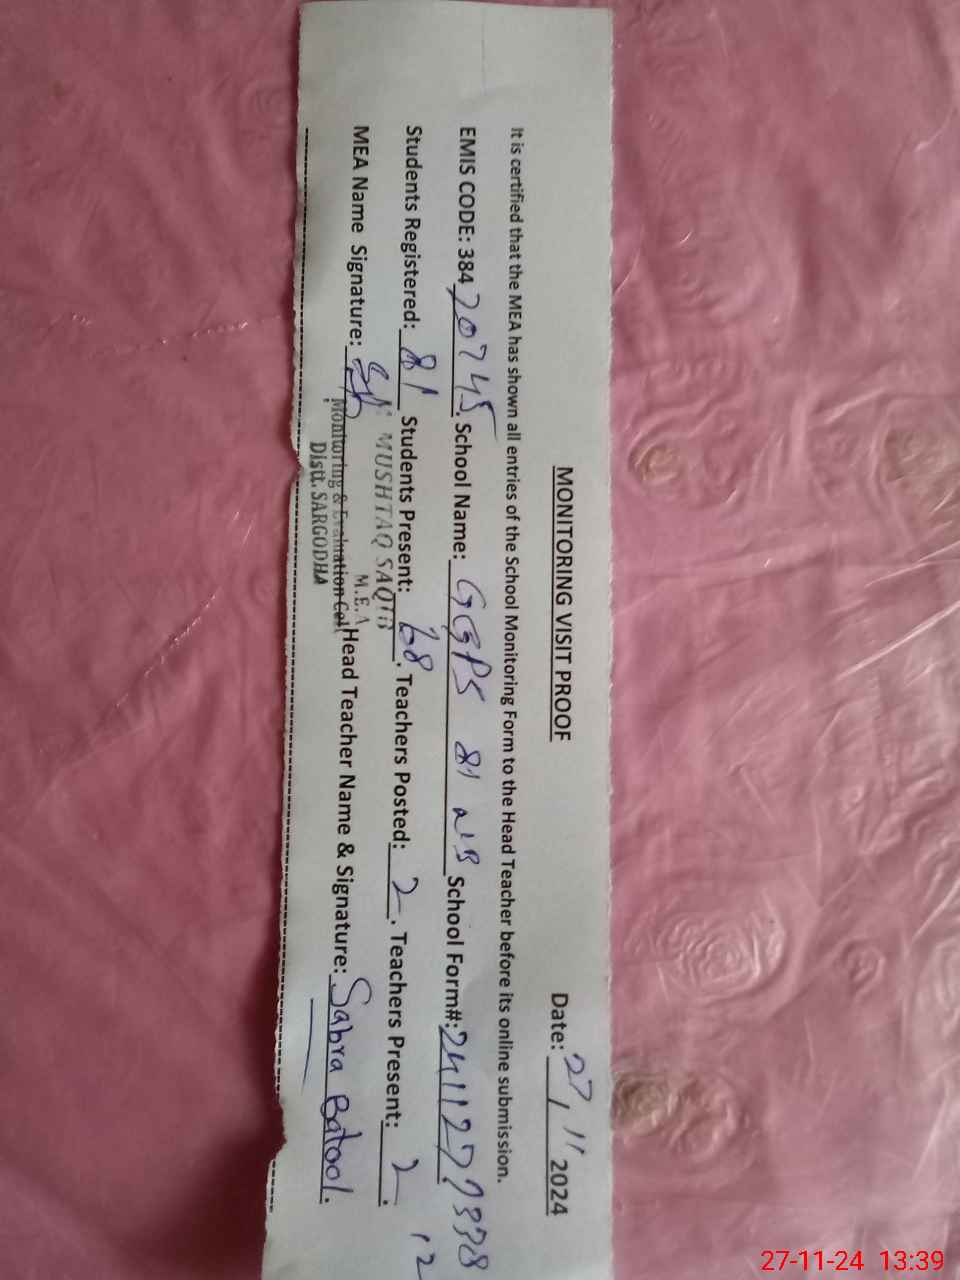 MONITORING VISIT PROOF
Date: 27/11 2024
It is certified that the MEA has shown all entries of the School Monitoring Form to the Head Teacher before its online submission.
EMIS CODE: 384 20745. School Name: GGPS 81 NB School Form#: 241127
Students Registered: 81 Students Present: 68. Teachers Posted: 2. Teachers Present: 2.
12
MUSHTAQ SAQIB
M.E.A
MEA Name Signature: Head Teacher Name & Signature: Sabra Batool.
Monitoring & Evaluation Cel
Distt. SARGODHA
27-11-24 13:39